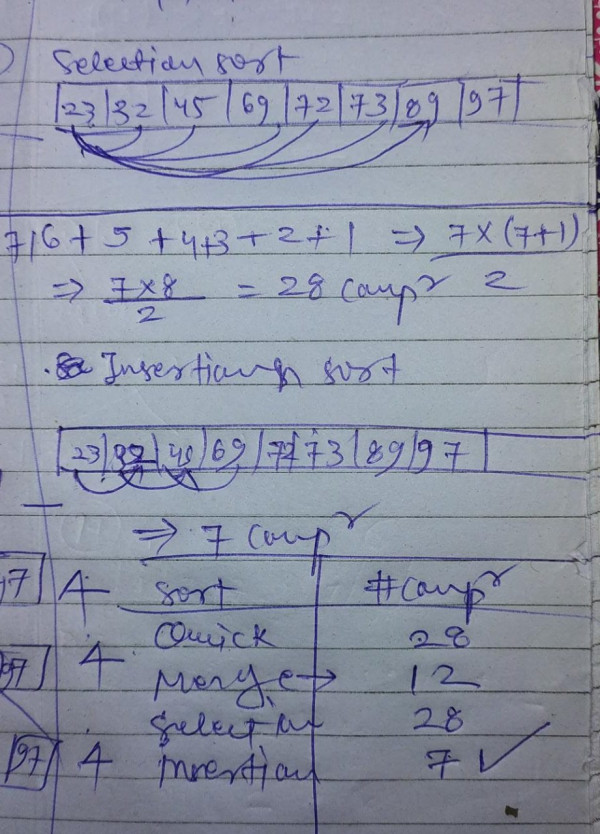 Selection sort
23 | 32 | 45 | 69 | 72 | 73 | 89 | 97
7+6 + 5 + 4+3 + 2 + 1 ⇒ 7 × (7+1) / 2
⇒ 7 × 8 / 2 = 28 compr
Insertion sort
23 | 32 | 45 | 69 | 72 | 73 | 89 | 97
⇒ 7 compr
97 4 sort #compr
Quick 28
97 4 Merge → 12
Selection 28
97 4 Insertion 7 ✓